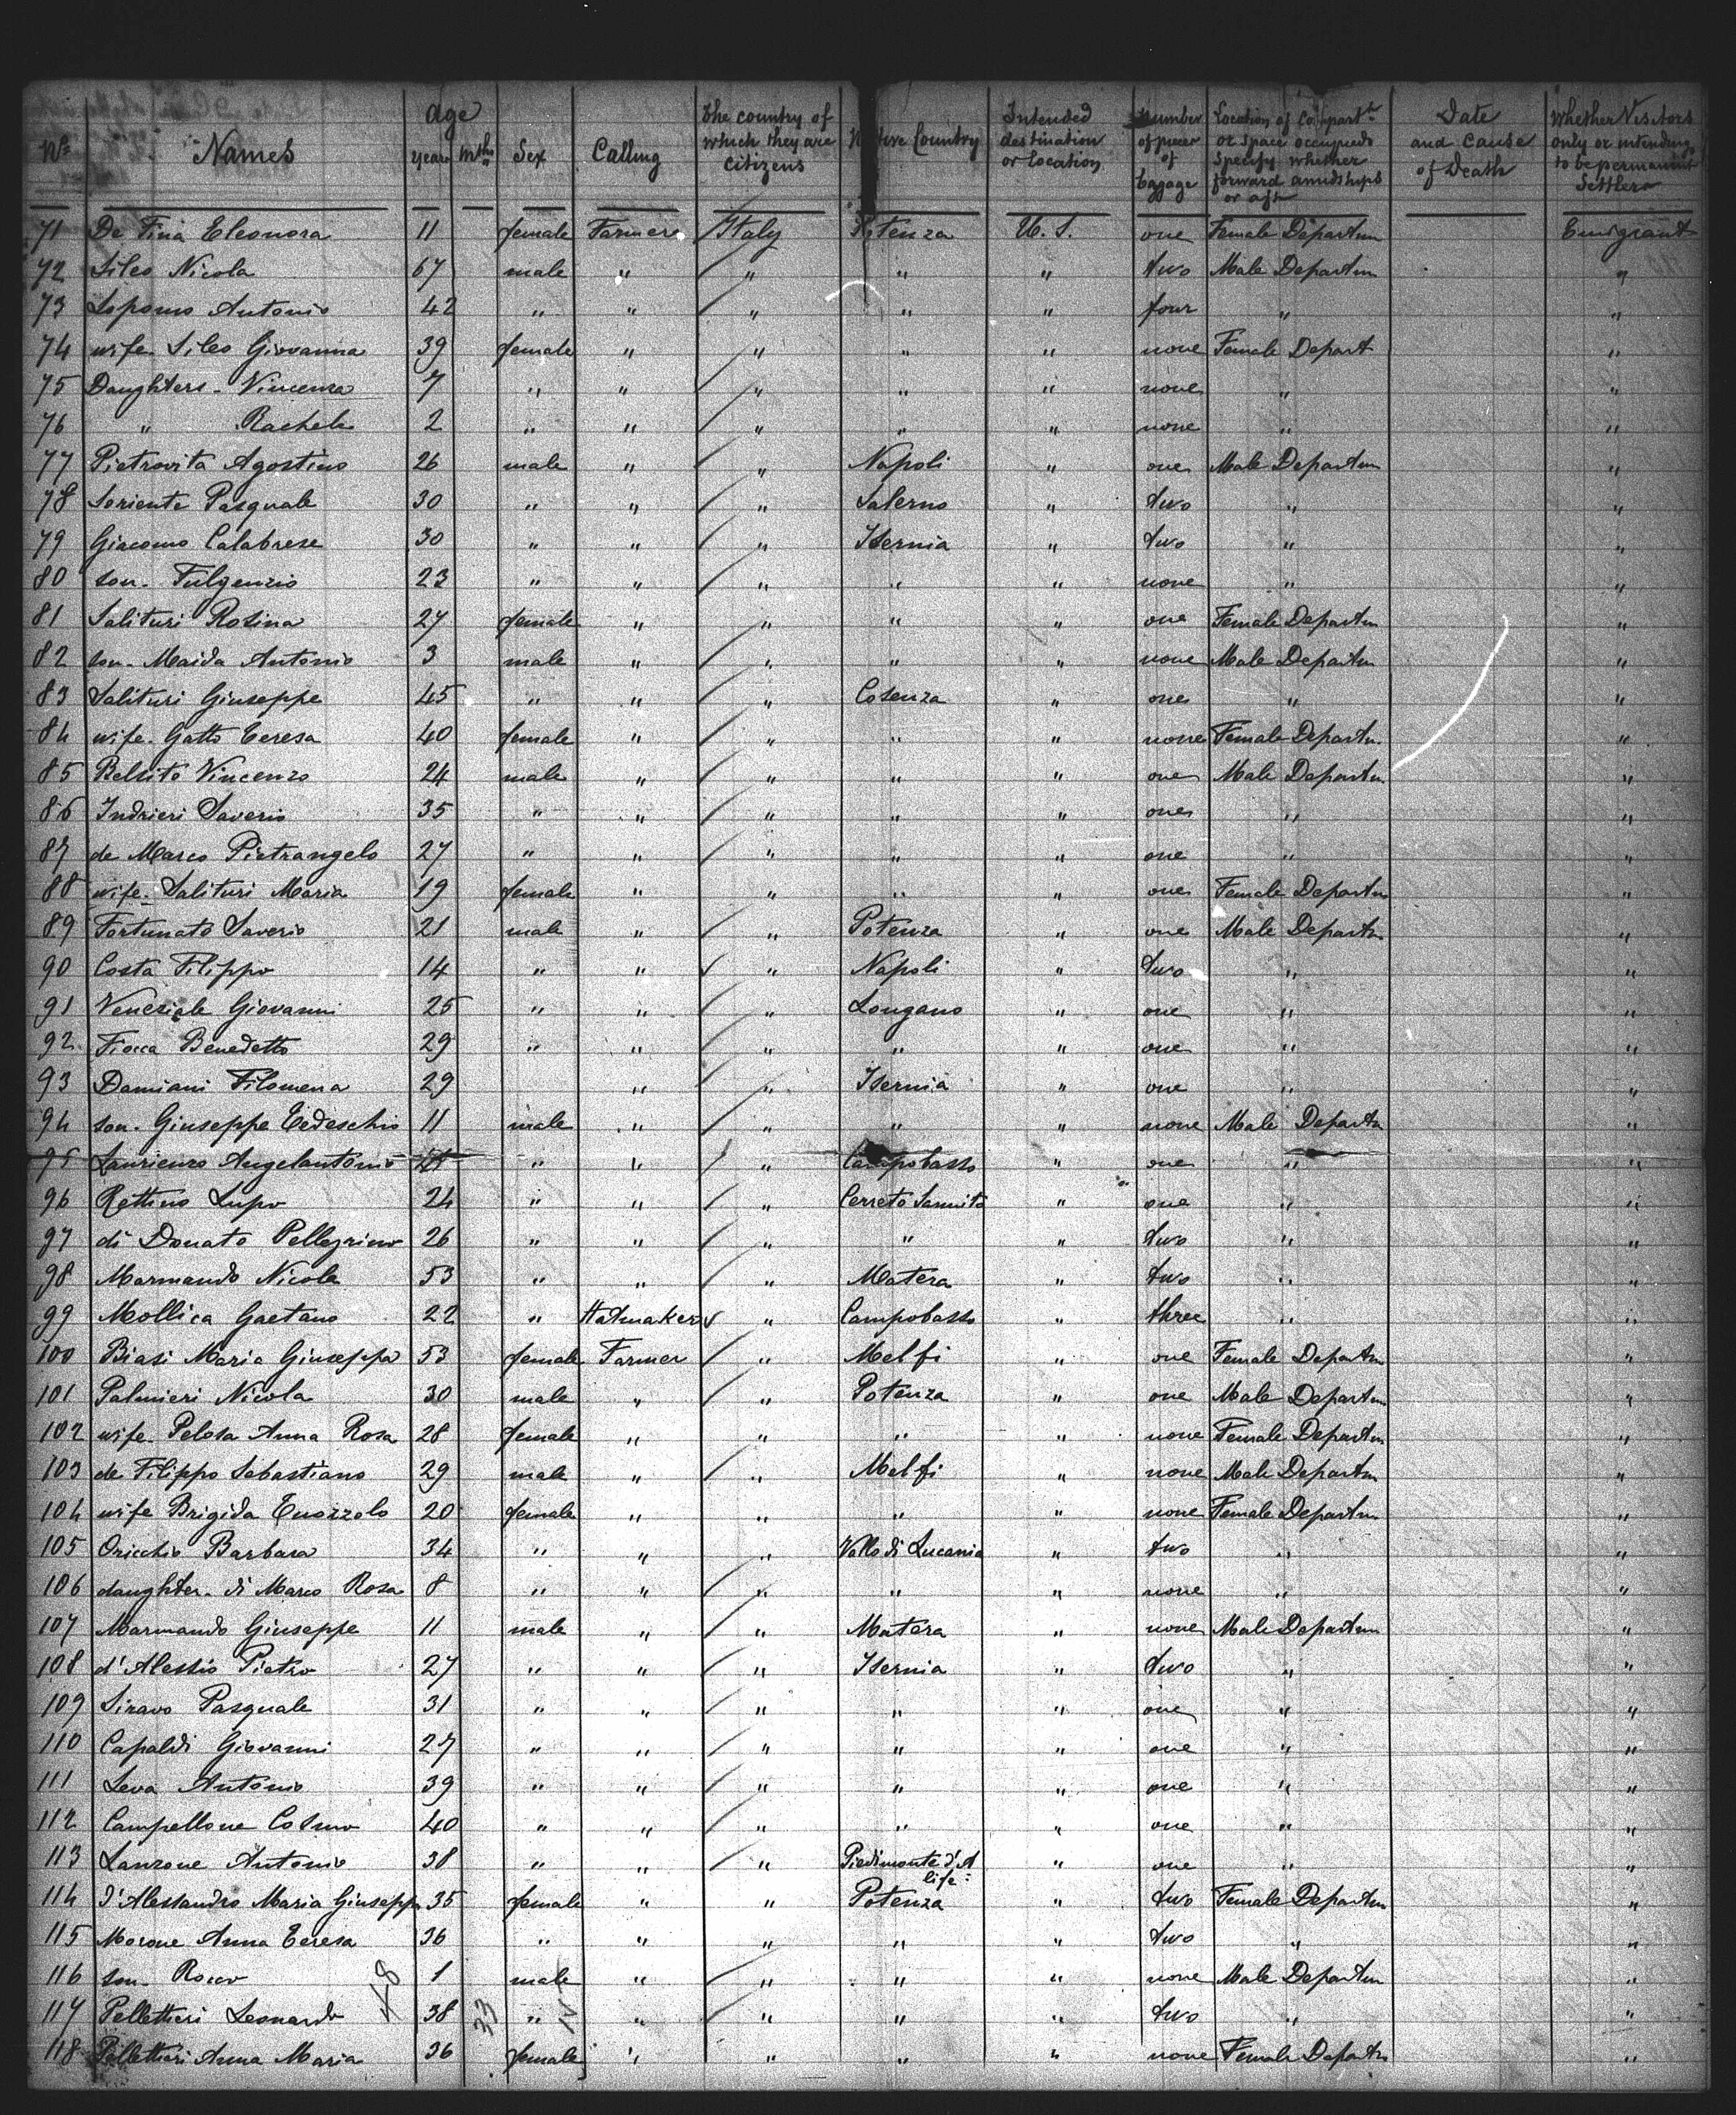 No Names age years mths Sex Calling the country of which they are citizens Native Country Intended destination or location Number of pieces of bagage Location of Compartt or space occupied specify whether forward amidships or aft Date and cause of Death Whether Visitors only or intending to be permanent Settlers
71 De Fina Eleonora 11 female Farmer Italy Potenza U. S. one Female Departm Emigrant
72 Sileo Nicola 67 male " " " " two Male Departm "
73 Lopomo Antonio 42 " " " " " four " "
74 wife Sileo Giovanna 39 female " " " " none Female Depart "
75 Daughters - Vincenza 7 " " " " " none " "
76 " Rachele 2 " " " " " none " "
77 Pietrovita Agostino 26 male " " Napoli " one Male Departm "
78 Soriente Pasquale 30 " " " Salerno " two " "
79 Giacomo Calabrese 30 " " " Isernia " two " "
80 son - Fulgenzio 23 " " " " " none " "
81 Salituri Rosina 27 female " " " " one Female Departm "
82 son - Maida Antonio 3 male " " " " none Male Departm "
83 Salituri Giuseppe 45 " " " Cosenza " one " "
84 wife - Gatto Teresa 40 female " " " " none Female Departm. "
85 Belsito Vincenzo 24 male " " " " one Male Departm "
86 Indrieri Saverio 35 " " " " " one " "
87 de Marco Pietrangelo 27 " " " " " one " "
88 wife - Salituri Maria 19 female " " " " one Female Departm "
89 Fortunato Saverio 21 male " " Potenza " one Male Departm "
90 Costa Filippo 14 " " " Napoli " two " "
91 Veneziale Giovanni 25 " " " Longano " one " "
92 Fiocca Benedetto 29 " " " " " one " "
93 Damiani Filomena 29 " " Isernia " one " "
94 son - Giuseppe Tedeschio 11 male " " " " none Male Departm "
95 Laurienzo Angelantonio " " " Campobasso one " "
96 Rettino Lupo 24 " " " Cerreto Sannito " one " "
97 di Donato Pellegrino 26 " " " " " two " "
98 Marmando Nicola 53 " " " Matera " two " "
99 Mollica Gaetano 22 " Hatmaker " Campobasso " three " "
100 Biasi Maria Giuseppa 53 female Farmer " Melfi " one Female Departm "
101 Palmieri Nicola 30 male " " Potenza " one Male Departm "
102 wife - Pelosa Anna Rosa 28 female " " " " none Female Departm "
103 de Filippo Sebastiano 29 male " " Melfi " none Male Departm "
104 wife Brigida Cuozzolo 20 female " " " " none Female Departm "
105 Oricchio Barbara 34 " " " Vallo di Lucania " two " "
106 daughter - di Marco Rosa 8 " " " " " none " "
107 Marmando Giuseppe 11 male " " Matera " none Male Departm "
108 d'Alessio Pietro 27 " " " Isernia " two " "
109 Siravo Pasquale 31 " " " " " one " "
110 Capaldi Giovanni 27 " " " " " one " "
111 Leva Antonio 39 " " " " " one " "
112 Campellone Cosmo 40 " " " " " one " "
113 Lanzone Antonio 38 " " " Piedimonte d'A " one " "
life -
114 d'Alessandro Maria Giuseppa 35 female " " Potenza " two Female Departm "
115 Morone Anna Teresa 36 " " " " " two " "
116 son - Rocco 1 male " " " " none Male Departm "
117 Pellettieri Leonardo 38 " " " " " two " "
118 Pellettieri Anna Maria 36 female " " " " none Female Departm "
48 33 15